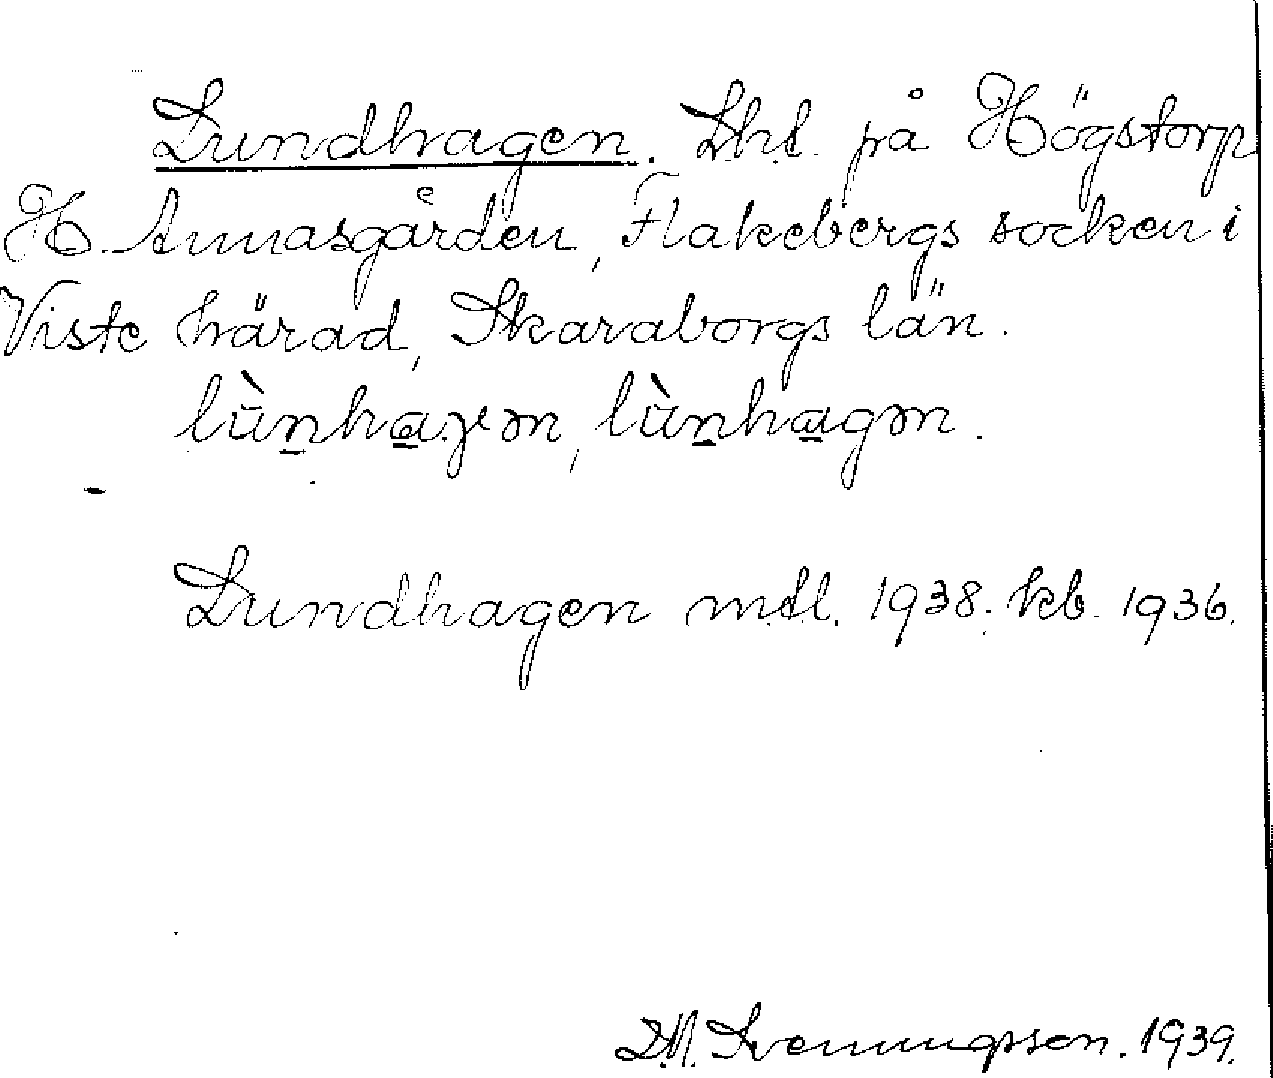 Lundhagen. Lht. på Högstorp
H. Annasgården, Flakebergs socken i
Viste härad, Skaraborgs län.
lùn̲ha̲gen, lùn̲ha̲gən.
Lundhagen mtl. 1938. kb. 1936.
Svenungsson. 1939.